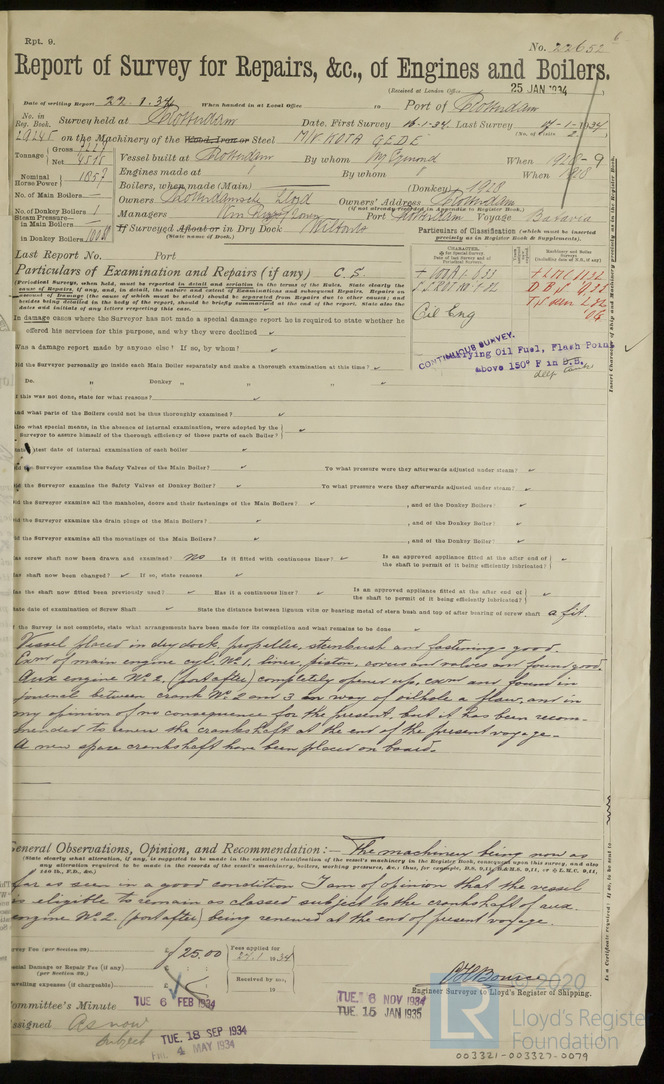 Rpt. 9.
No. 22652
6
Report of Survey for Repairs, &c., of Engines and Boilers.
(Received at London Office 25 JAN 1934
Date of writing Report 22.1.34 When handed in at Local Office Port of Rotterdam
No. in Reg. Book. Survey held at Rotterdam Date, First Survey 16-1-34 Last Survey 1934
(No. of Visits 2)
29245 on the Machinery of the Wood, Iron or Steel M/V KOTA GEDE
Tonnage Gross Net
Vessel built at Rotterdam By whom When 1928-9
Nominal Horse Power 1857
Engines made at By whom When 1928
No. of Main Boilers
Boilers, when made (Main) (Donkey) 1928
No. of Donkey Boilers 1
Owners Rotterdamsche Lloyd Owners' Address Rotterdam
(if not already recorded in Appendix to Register Book.)
Steam Pressure in Main Boilers
Managers Port Rotterdam Voyage Batavia
in Donkey Boilers
If Surveyed Afloat or in Dry Dock
(State name of Dock.)
Particulars of Classification (which must be inserted precisely as in Register Book & Supplements).
Last Report No. Port
Particulars of Examination and Repairs (if any) C.S.
Oil Eng
CONTINUOUS SURVEY.
Carrying Oil Fuel, Flash Point
above 150° F in D.B.
deep tanks
In damage cases where the Surveyor has not made a special damage report he is required to state whether he
offered his services for this purpose, and why they were declined
Was a damage report made by anyone else? If so, by whom?
Did the Surveyor personally go inside each Main Boiler separately and make a thorough examination at this time?
Do. " Donkey " " "
If this was not done, state for what reasons?
And what parts of the Boilers could not be thoroughly examined?
Also what special means, in the absence of internal examination, were adopted by the
Surveyor to assure himself of the thorough efficiency of those parts of each Boiler?
latest date of internal examination of each boiler
Did the Surveyor examine the Safety Valves of the Main Boiler? To what pressure were they afterwards adjusted under steam?
Did the Surveyor examine the Safety Valves of Donkey Boiler? To what pressure were they afterwards adjusted under steam?
Did the Surveyor examine all the manholes, doors and their fastenings of the Main Boilers? , and of the Donkey Boilers?
Did the Surveyor examine the drain plugs of the Main Boilers? , and of the Donkey Boiler?
Did the Surveyor examine all the mountings of the Main Boilers? , and of the Donkey Boiler?
Has screw shaft now been drawn and examined? No Is it fitted with continuous liner? Is an approved appliance fitted at the after end of
the shaft to permit of it being efficiently lubricated?
Has shaft now been changed? If so, state reasons
Has the shaft now fitted been previously used? Has it a continuous liner? Is an approved appliance fitted at the after end of
the shaft to permit of it being efficiently lubricated?
State date of examination of Screw Shaft State the distance between lignum vitæ or bearing metal of stern bush and top of after bearing of screw shaft a fit.
If the Survey is not complete, state what arrangements have been made for its completion and what remains to be done
Vessel placed in drydock, propeller, sternbush and fastenings good.
Exam of main engine cyl. No. 1, liner, piston, covers and valves and found good
Aux engine No. 2. (port after) completely opened up, exam and found in
journal between crank No. 2 and 3 in way of oilhole a flaw, and in
my opinion of no consequence for the present, but it has been recom-
mended to renew the crankshaft at the end of the present voyage.
A new spare crankshaft have been placed on board.
General Observations, Opinion, and Recommendation:— The machinery being now as
(State clearly what alteration, if any, is suggested to be made in the existing classification of the vessel's machinery in the Register Book, consequent upon this survey, and also
any alteration required to be made in the records of the vessel's machinery, boilers, working pressures, &c.; thus, for example,
far as seen in a good condition I am of opinion that the vessel
is eligible to remain as classed subject to the crankshaft of aux.
engine No. 2. (port after) being renewed at the end of present voyage.
Survey Fee (per Section 29) f 25.00 Fees applied for
1934
Special Damage or Repair Fee (if any)
(per Section 29.)
Travelling expenses (if chargeable) Received by me,
Engineer Surveyor to Lloyd's Register of Shipping.
Committee's Minute TUE 6 FEB 1934
TUE. 6 NOV 1934
TUE 15 JAN 1935
Assigned As now
Subject
TUE. 18 SEP 1934
FRI. 4 MAY 1934
© 2020
LR
Lloyd's Register
Foundation
003321-003327-0079